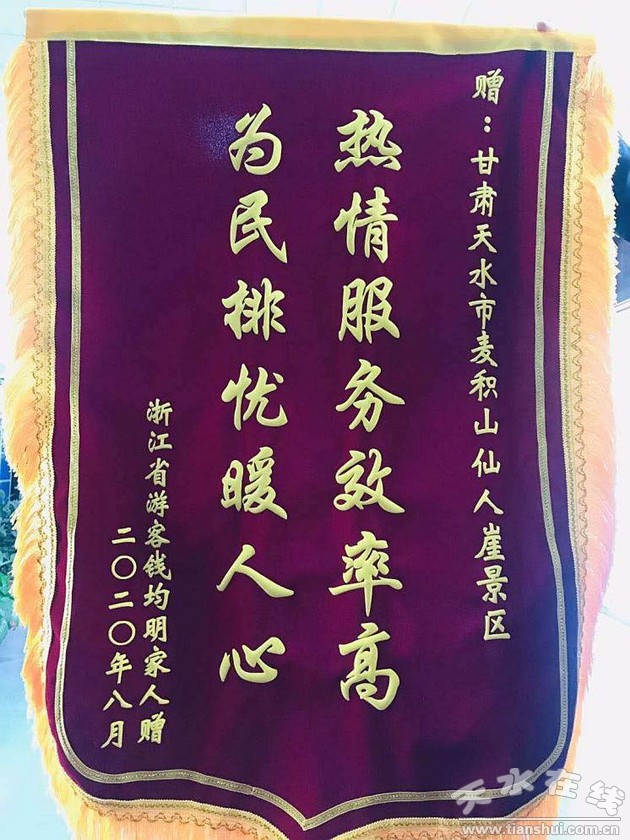 赠：甘肃天水市麦积山仙人崖景区
热情服务效率高
为民排忧暖人心
浙江省游客钱均明家人赠
二〇二〇年八月
天水在线
www.tianshui.com.cn